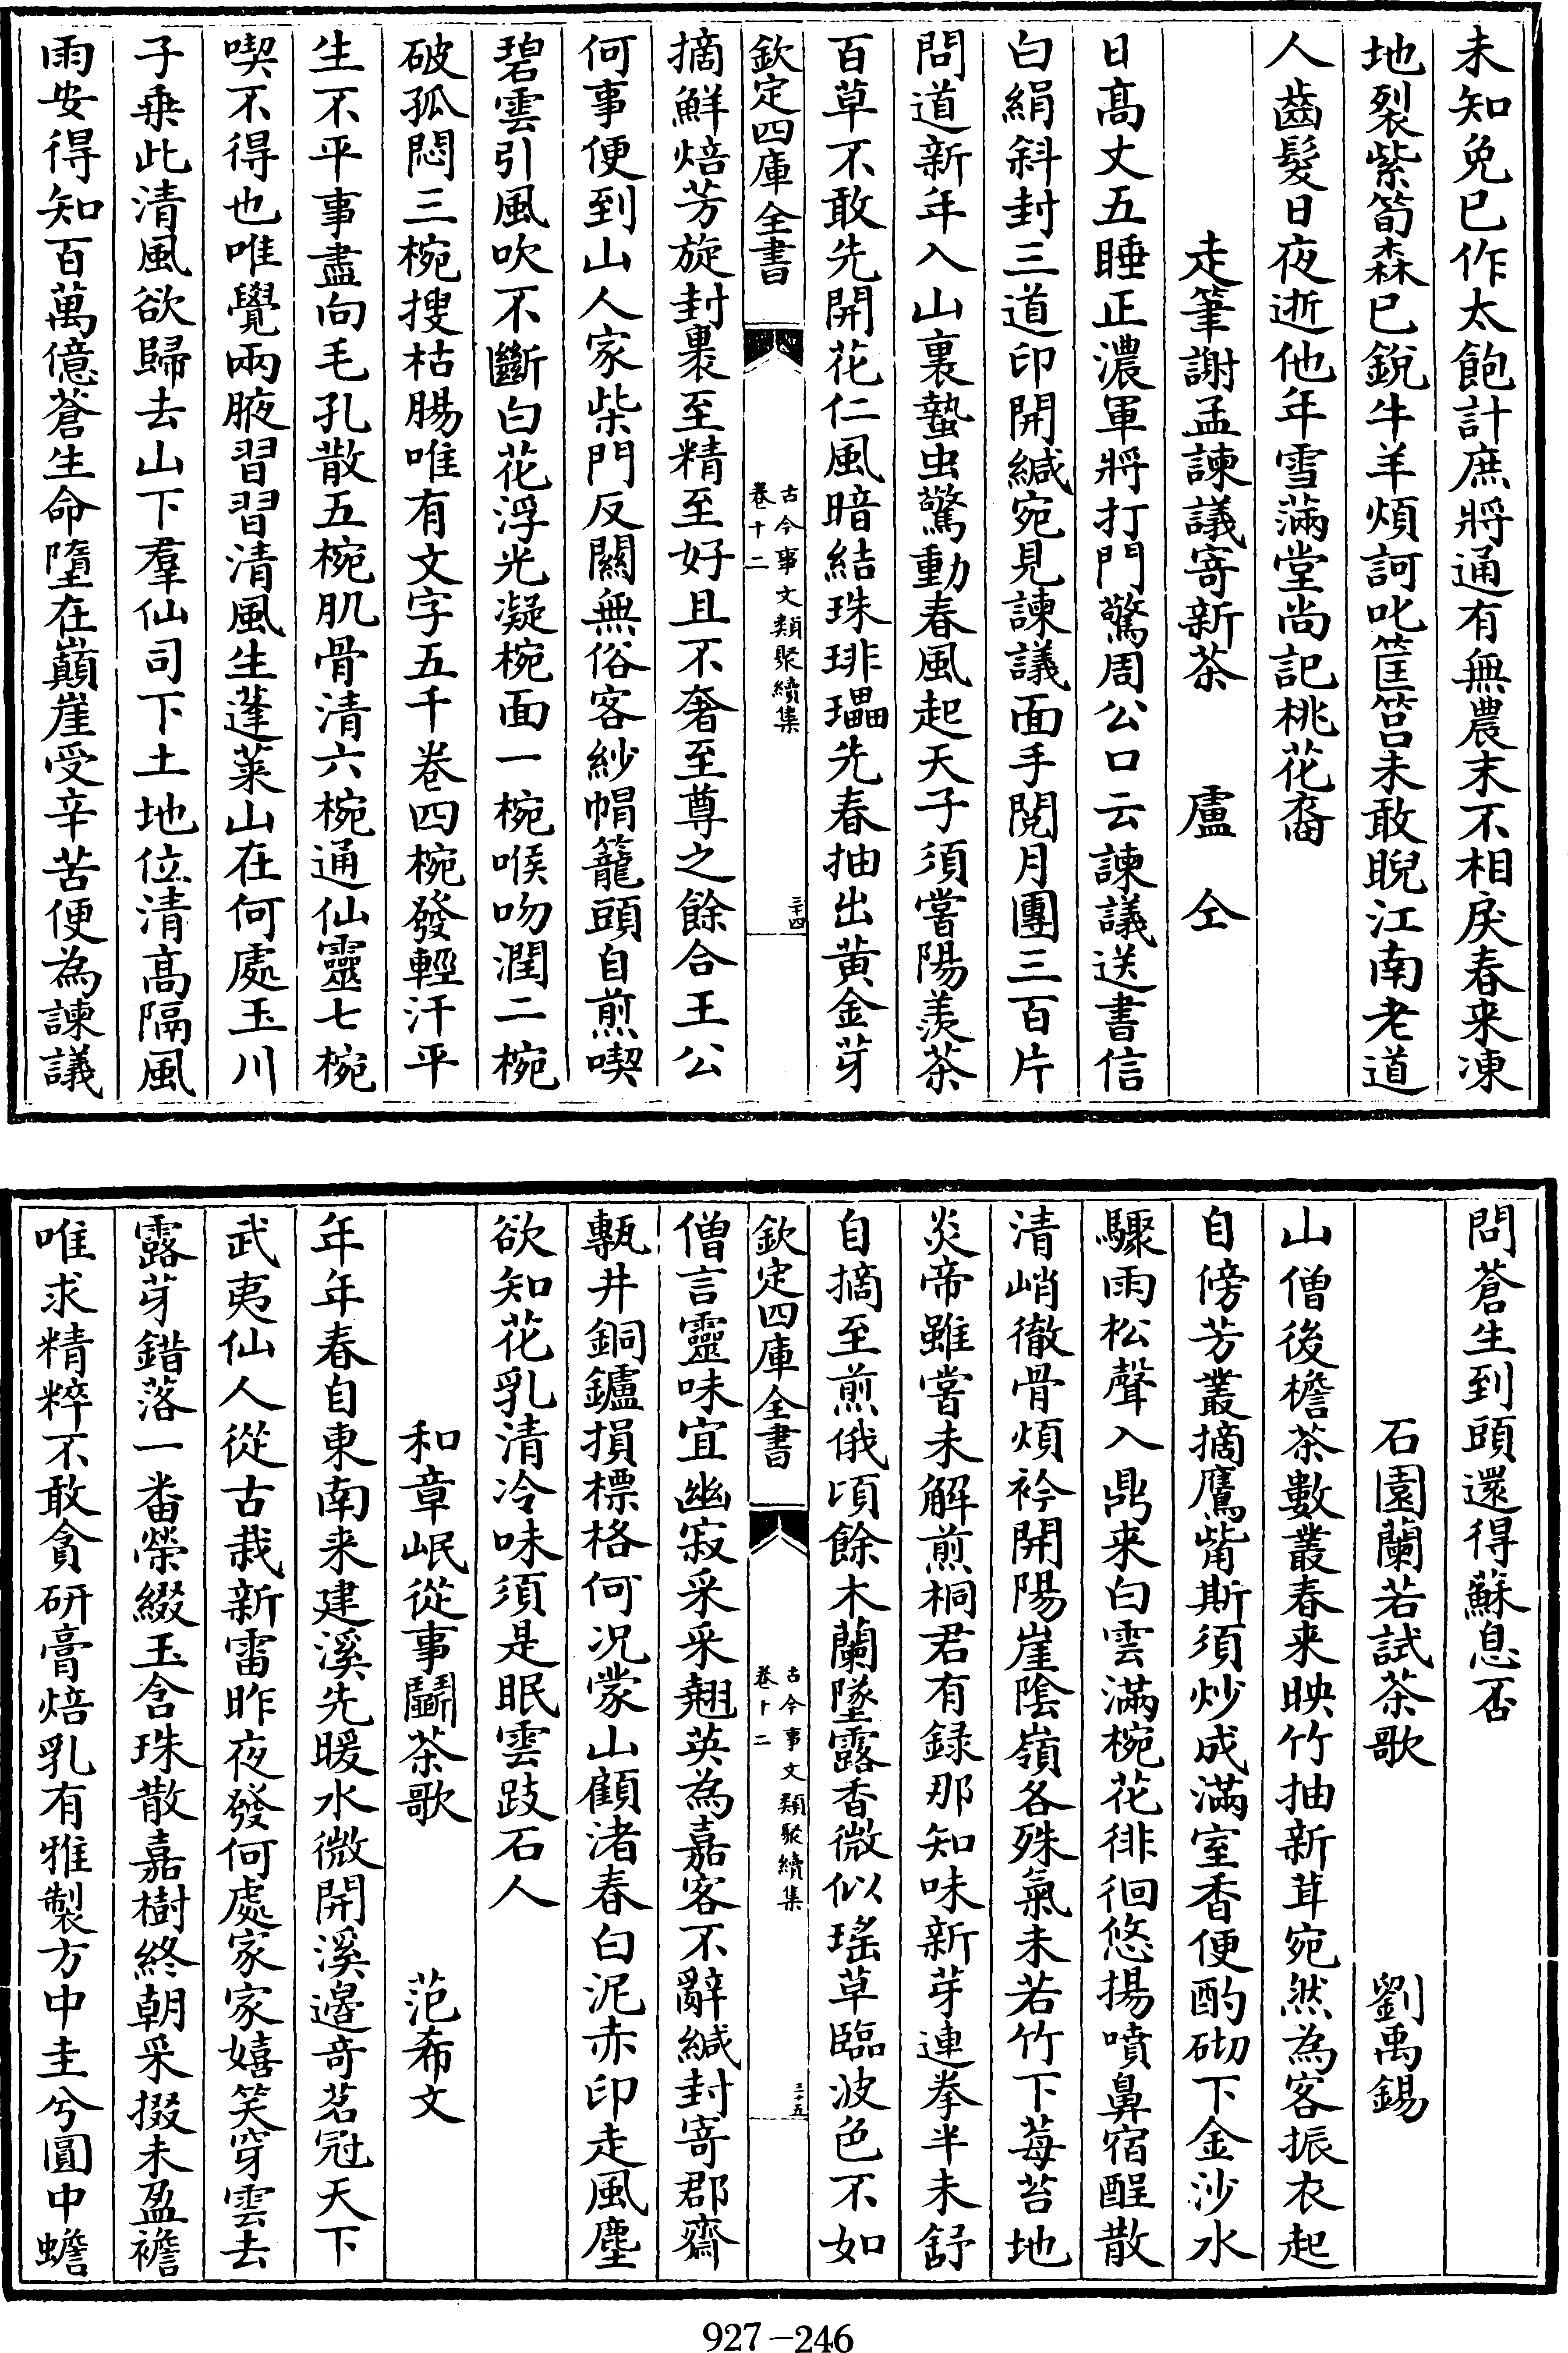 未知免已作太飽計庶將通有無農末不相戾春来凍
地裂紫筍森已銳牛羊煩訶叱筐筥未敢睨江南老道
人齒髮日夜逝他年雪滿堂尚記桃花裔
走筆謝孟諫議寄新茶　盧仝
日髙丈五睡正濃軍將打門驚周公口云諫議送書信
白絹斜封三道印開緘宛見諫議面手閱月團三百片
問道新年入山裏蟄虫驚動春風起天子須嘗陽羨茶
百草不敢先開花仁風暗結珠琲瓃先春抽出黄金芽
欽定四庫全書
古今事文類聚續集
卷十二
三十四
摘鮮焙芳旋封裹至精至好且不奢至尊之餘合王公
何事便到山人家柴門反闗無俗客紗帽籠頭自煎喫
碧雲引風吹不斷白花浮光凝椀面一椀喉吻潤二椀
破孤悶三椀搜枯腸唯有文字五千卷四椀發輕汗平
生不平事盡向毛孔散五椀肌骨清六椀通仙靈七椀
喫不得也唯覺兩腋習習清風生蓬萊山在何處玉川
子乗此清風欲歸去山下羣仙司下土地位清髙隔風
雨安得知百萬億蒼生命墮在巔崖受辛苦便為諫議
問蒼生到頭還得蘇息否
石園蘭若試茶歌　劉禹錫
山僧後檐茶數叢春来映竹抽新茸宛然為客振衣起
自傍芳叢摘鷹觜斯須炒成滿室香便酌砌下金沙水
驟雨松聲入鼎来白雲滿椀花徘徊悠揚噴鼻宿酲散
清峭徹骨煩衿開陽崖陰嶺各殊氣未若竹下莓苔地
炎帝雖嘗未解煎桐君有録那知味新芽連拳半未舒
自摘至煎俄頃餘木蘭墜露香微似瑤草臨波色不如
欽定四庫全書
古今事文類聚續集
卷十二
三十五
僧言靈味宜幽寂采采翹英為嘉客不辭緘封寄郡齋
甎井銅鑪損標格何况蒙山顧渚春白泥赤印走風塵
欲知花乳清冷味須是眠雲跂石人
和章岷從事鬭茶歌　范希文
年年春自東南来建溪先暖水微開溪邉竒茗冠天下
武夷仙人從古栽新雷昨夜發何處家家嬉笑穿雲去
露芽錯落一番榮綴玉含珠散嘉樹終朝采掇未盈襜
唯求精粹不敢貪研膏焙乳有雅製方中圭兮圓中蟾
927-246